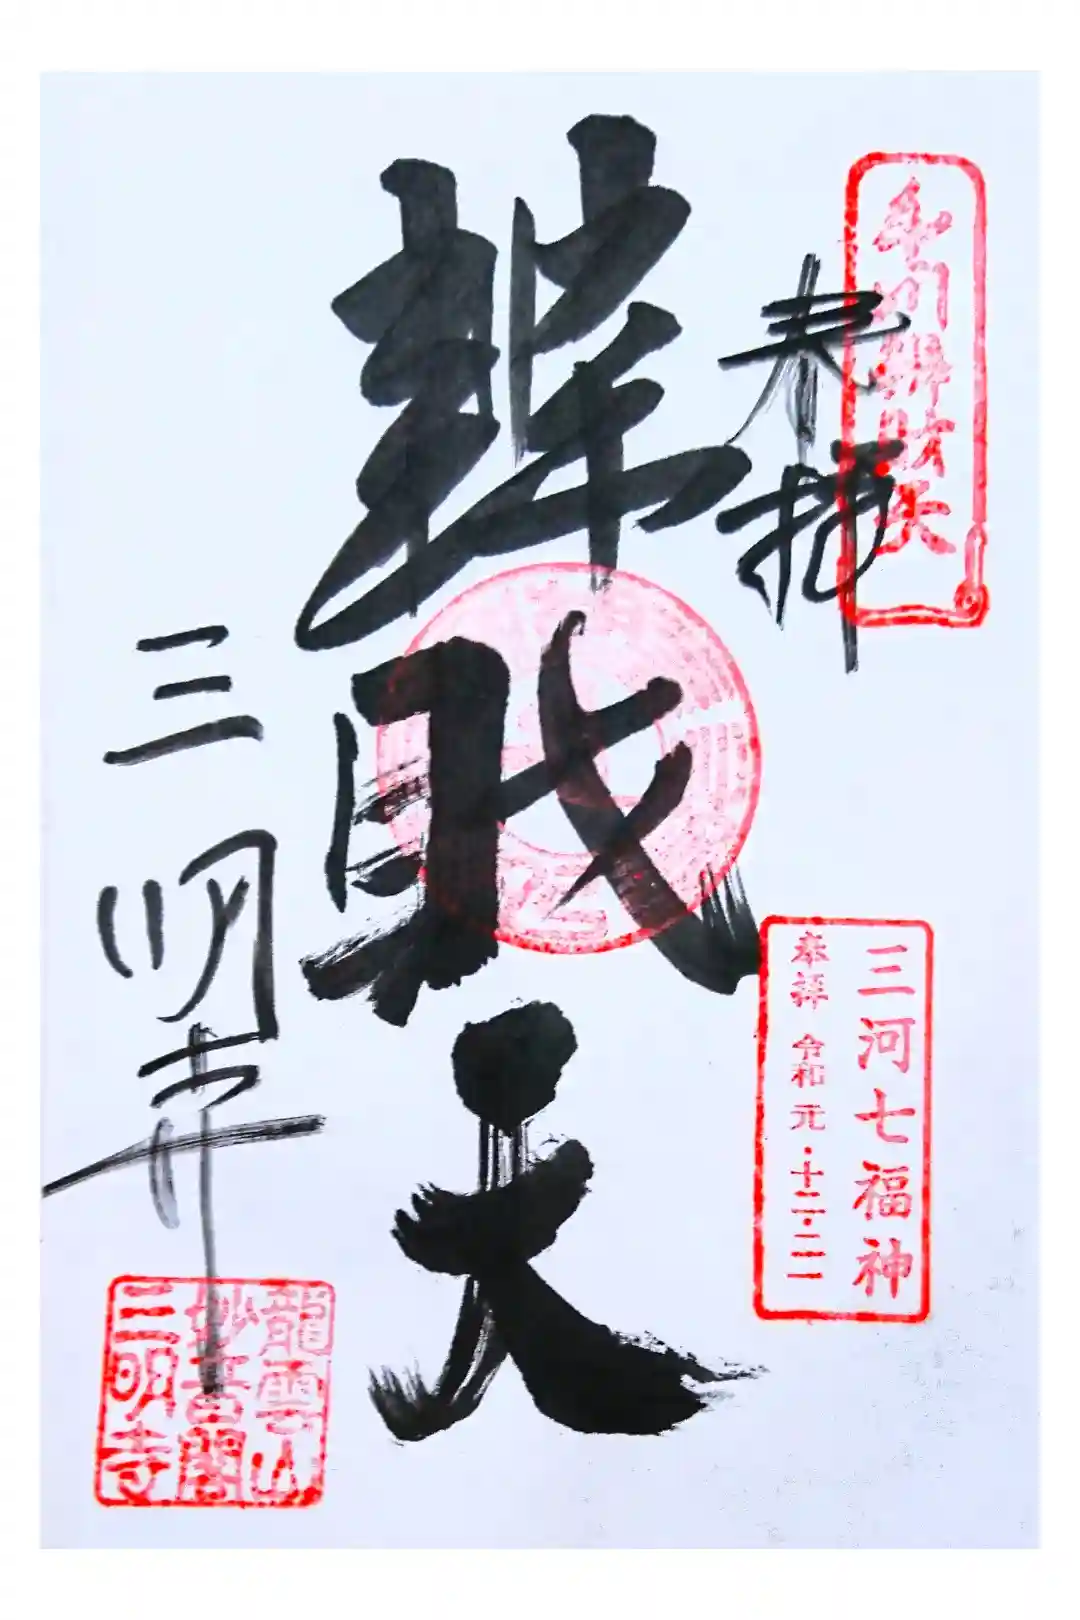 奉拝
辨財天
三明寺
豊川辨財天
三河七福神
奉拝 令和元・十二・二一
龍雲山
妙音閣
三明寺